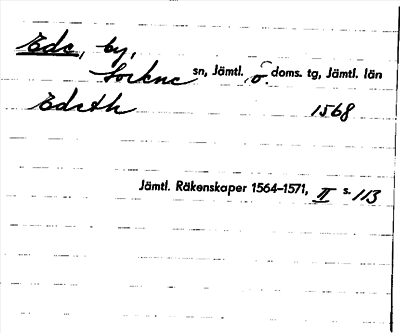 Ede, by,
Lockne sn, Jämtl. ö. doms. tg, Jämtl. län
Edeth 1568
Jämtl. Räkenskaper 1564–1571, II s. 113